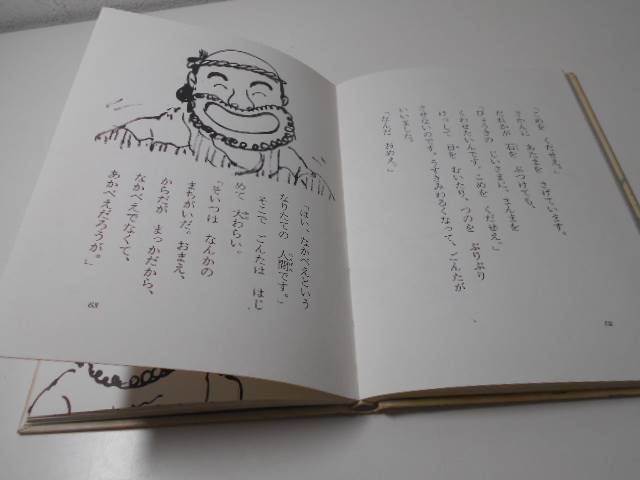 「こめを くだせえ。」
さかんに あたまを さげています。
だれかが 石を ぶつけても、
「びょうきの じいさまに、さんまを
くわせたいんです。こめを くだせえ。」
けっして 目を むいたり、つのを ぷりぷり
させないのです。うすきみわるくなって、ごんたが
いいました。
「なんだ おめえ。」
62
「はい、なかべえという
なりたての 人間です。」
にんげん
そこで ごんたは はじ
めて 大わらい。
「そいつは なんかの
まちがいだ。おまえ、
からだが まっかだから、
なかべえでなくて、
あかべえだろうが。」
63